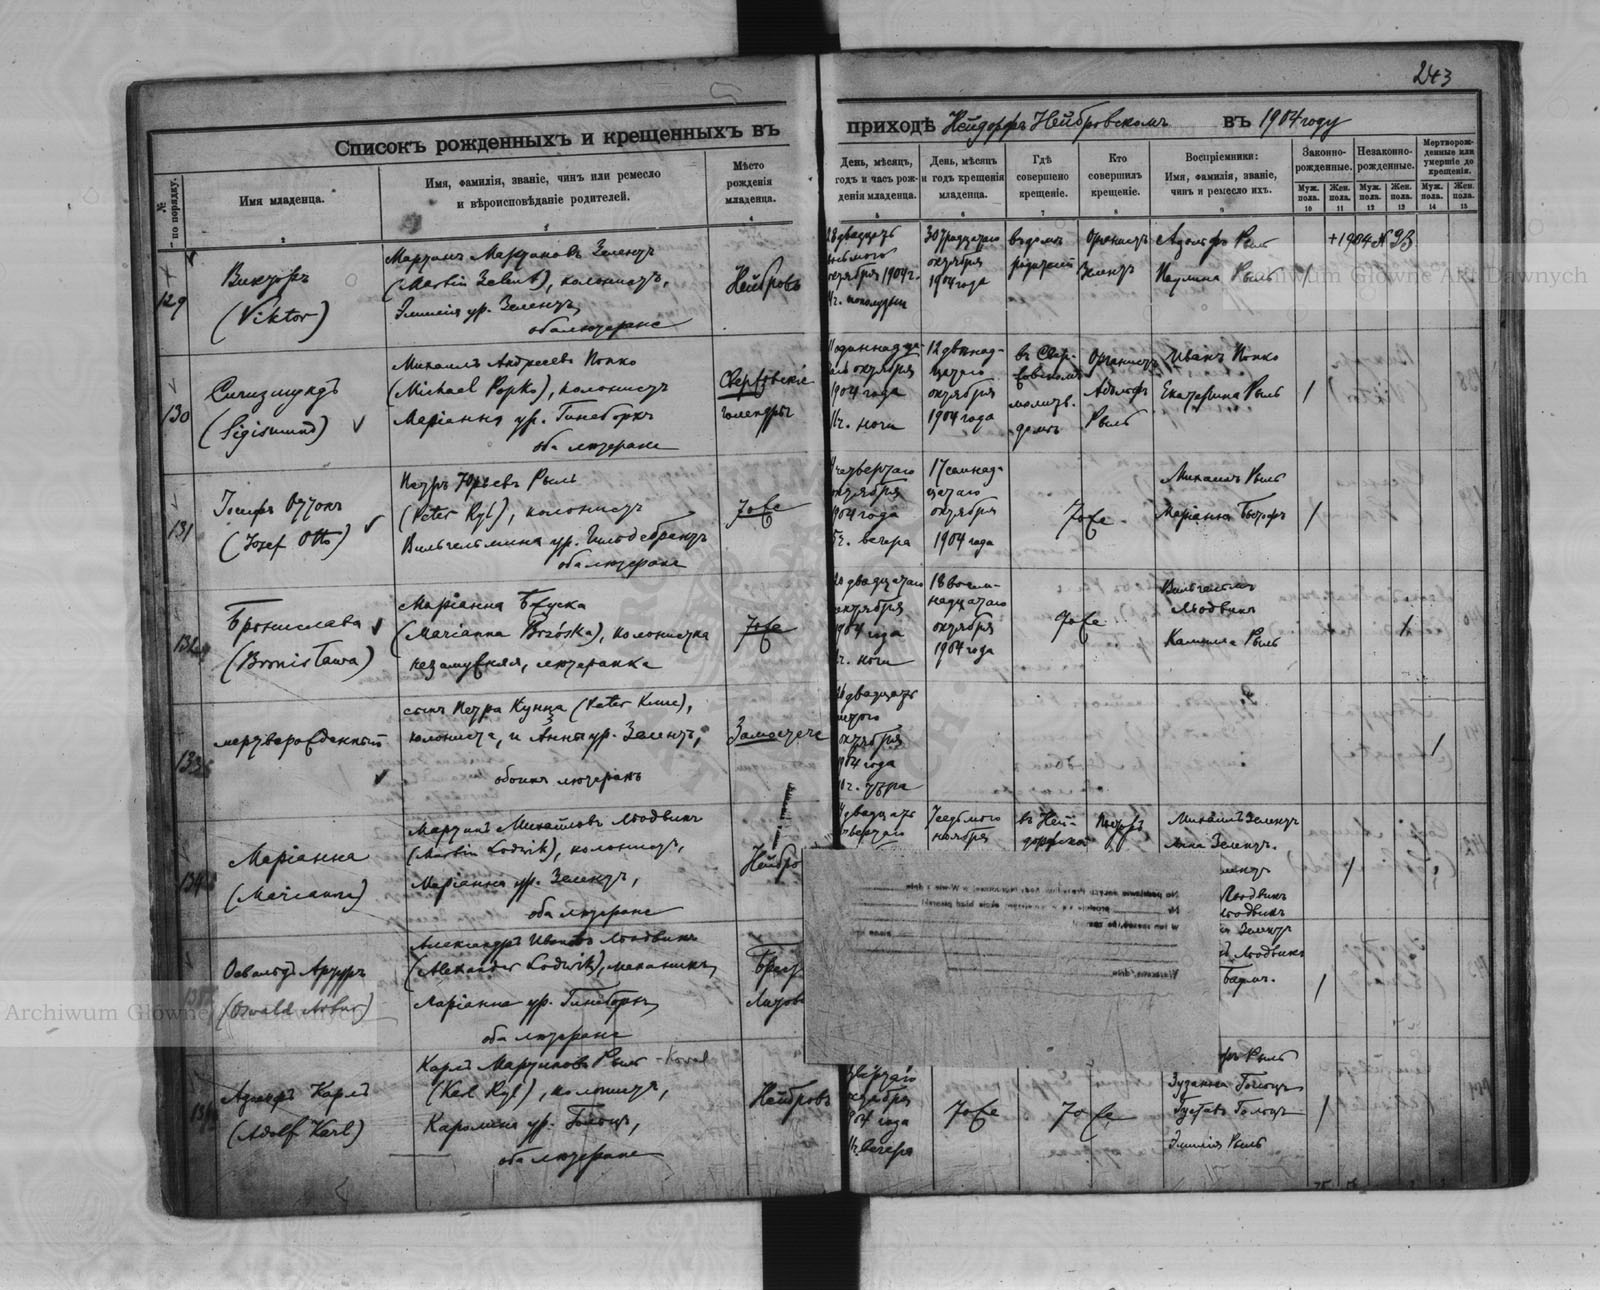 243
Списокъ рожденныхъ и крещенныхъ въ приходѣ Нейдорфъ Нейбровскомъ въ 1904 году
№ по порядку.
Имя младенца.
Имя, фамилія, званіе, чинъ или ремесло
и вѣроисповѣданіе родителей.
Мѣсто
рожденія
младенца.
День, мѣсяцъ,
годъ и часъ рож-
денія младенца.
День, мѣсяцъ
и годъ крещенія
младенца.
Гдѣ
совершено
крещеніе.
Кто
совершилъ
крещеніе.
Воспріемники:
Имя, фамилія, званіе,
чинъ и ремесло ихъ.
Законно-
рожденные.
Незаконно-
рожденные.
Мертворож-
денные или
умершіе до
крещенія.
Муж. пола.
Жен. пола.
Муж. пола.
Жен. пола.
Муж. пола.
Жен. пола.
2 3 4 5 6 7 8 9 10 11 12 13 14 15
129
Викторъ
(Viktor)
Мартинъ Мартиновъ Зеленть
(Martin Zelent), колонистъ,
Эмилія ур. Зелентъ,
оба лютеране
Нейбровъ
28 двадцать
восьмого
октября 1904 г.
4 ч. пополудни
30 тридцатаго
октября
1904 года
въ домѣ
родителей
Органистъ
Зелентъ
Адольфъ Рыль
Паулина Рыль
/
+ 1904 №
130
Сигизмундъ
(Sigismund)
Михаилъ Андреевъ Попко
(Michael Popko), колонистъ
Маріанна ур. Гинеборгъ
оба лютеране
Свержовскіе
голендры
11 одиннадца-
таго октября
1904 года
11 ч. ночи
12 двѣнад-
цатаго
октября
1904 года
въ Свер-
жовскомъ
молитв.
домѣ
Органистъ
Адольфъ
Рыль
Иванъ Попко
Екатерина Рыль
/
131
Іосифъ Оттонъ
(Josef Otto)
Петръ Юрьевъ Рыль
(Peter Ryl), колонистъ
Вильгельмина ур. Гильдебрандтъ
оба лютеране
Тоже
четвертаго
октября
1904 года
5 ч. вечера
17 семнад-
цатаго
октября
1904 года
Тоже
Михаилъ Рыль
Маріанна
/
132
Бронислава
(Bronisława)
Маріанна Бжуска
(Marianna Bzóska), колонистка
незамужняя, лютеранка
Тоже
двадцатаго
октября
1904 года
ч. ночи
18 восем-
надцатаго
октября
1904 года
Тоже
Вильгельмъ
Людвикъ
Камилла Рыль
133
мертворожденный
сынъ Петра Кунца (Peter Kunc),
колониста, и Анны ур. Зелентъ,
обоихъ лютеранъ
Замостече
26 двадцать
шестого
октября
1904 года
ч. утра
/
134
Маріанна
(Marianna)
Мартинъ Михайловъ Людвикъ
(Martin Ludwik), колонистъ,
Маріанна ур. Зелентъ,
оба лютеране
Нейбро
двадцать
четвертаго
7 седьмого
ноября
въ Ней-
дорфской
Пасторъ
Михаилъ Зелентъ
Анна Зелентъ.
Людвикъ
Людвикъ
/
135
Освальдъ Артуръ
(Oswald Artur)
Александръ Ивановъ Людвикъ
(Alexander Ludwik), механикъ,
Маріанна ур. Гинеборгъ,
оба лютеране
Брест
Литов
Зелентъ
Людвикъ
/
136
Адольфъ Карлъ
(Adolf Karl)
Карлъ Мартиновъ Рыль - Kowal
(Karl Ryl), колонистъ,
Каролина ур. Гольцъ,
оба лютеране
Нейбровъ
октября
1904 года
вечера
Тоже
Тоже
Рыль
Зузанна Гольцъ
Густавъ Гольцъ
Эмилія Рыль
/
Archiwum Główne Akt Dawnych
Archiwum Główne Akt Dawnych